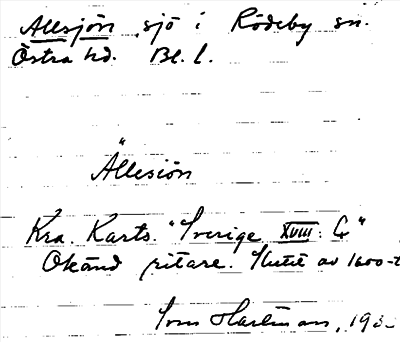 Allsjön, sjö i Rödeby sn.
Östra hd. Bl. l.
Ällesiön
Kra. Karts. "Sverige XVIII: G"
Okänd ritare. Slutet av 1600-t
Hartman, 193